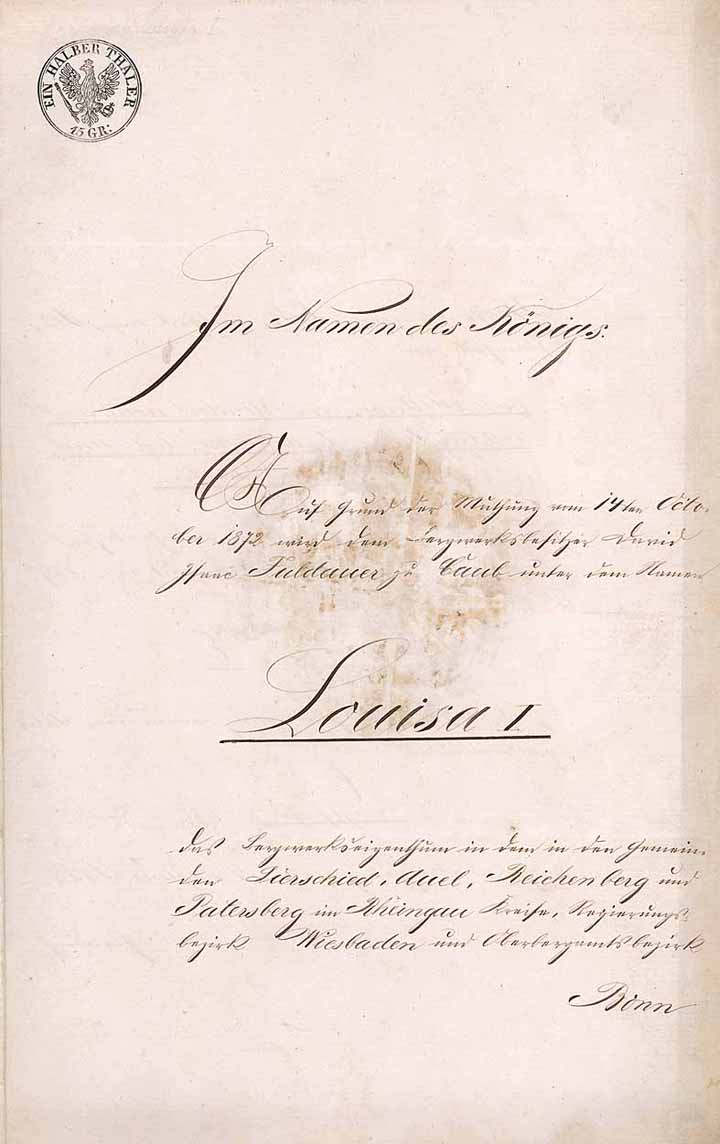 EIN HALBER THALER
15 GR:
Im Namen des Königs.
Auf Grund der Muthung vom 14ten Octo-
ber 1872 wird dem Bergwerksbesitzer David
Isaac Fuldauer zu Caub unter dem Namen
Louisa I
das Bergwerkseigenthum in dem in den Gemein-
den Lierschied, Auel, Reichenberg und
Patersberg im Rheingau Kreise, Regierungs-
bezirk Wiesbaden und Oberbergamtsbezirk
Bonn